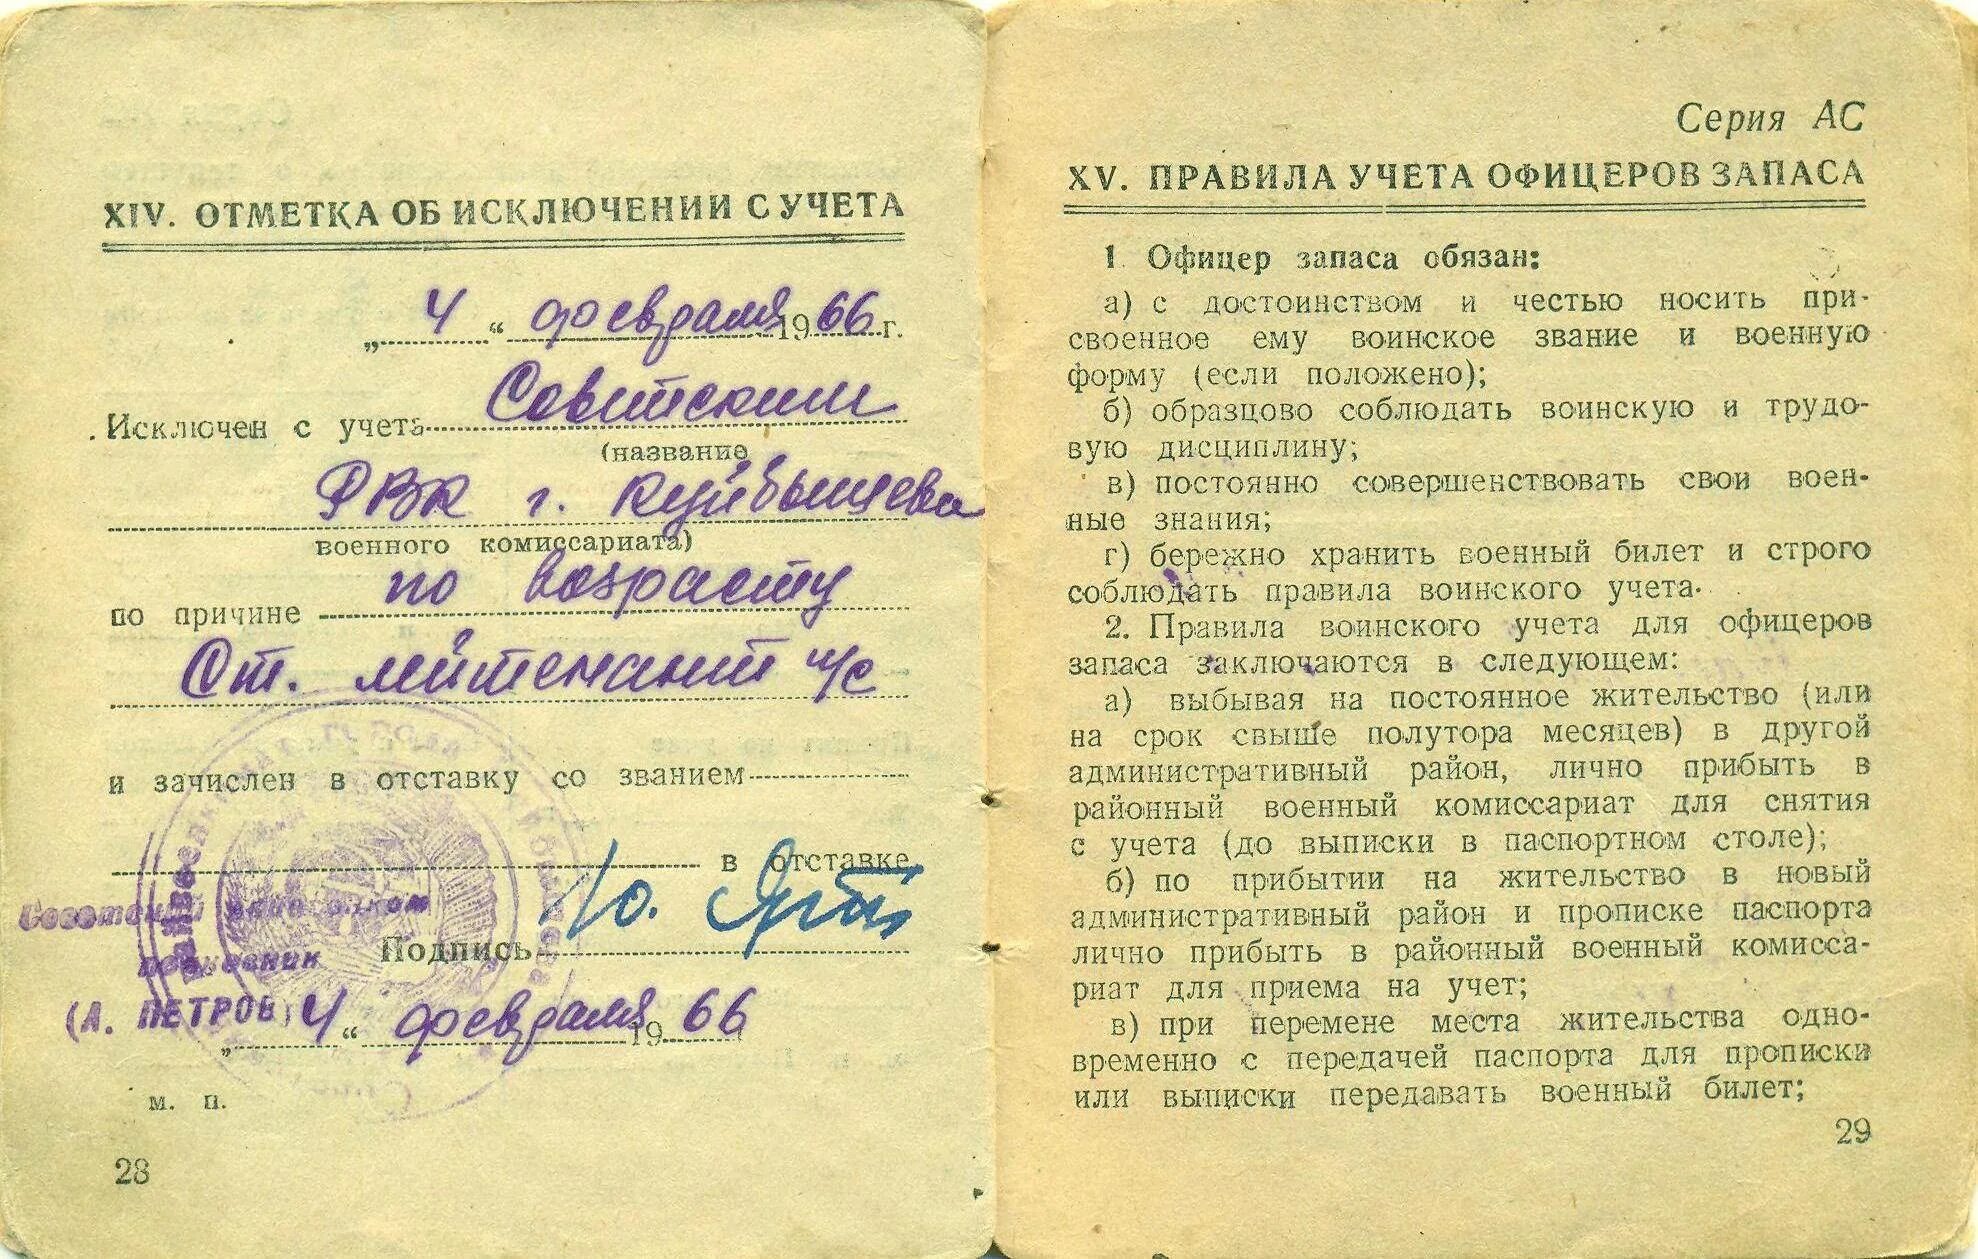 XIV. ОТМЕТКА ОБ ИСКЛЮЧЕНИИ С УЧЕТА
„4“ февраля 1966 г.
Исключен с учета Советским
(название
РВК г. Куйбышева
военного комиссариата)
по причине по возрасту
Ст. лейтенант
и зачислен в отставку со званием
в отставке
Советский
Подпись Ю.
полковник
(А. ПЕТРОВ)
„4“ февраля 1966
м. п.
28
Серия АС
XV. ПРАВИЛА УЧЕТА ОФИЦЕРОВ ЗАПАСА
1 Офицер запаса обязан:
а) с достоинством и честью носить при-
своенное ему воинское звание и военную
форму (если положено);
б) образцово соблюдать воинскую и трудо-
вую дисциплину;
в) постоянно совершенствовать свои воен-
ные знания;
г) бережно хранить военный билет и строго
соблюдать правила воинского учета.
2. Правила воинского учета для офицеров
запаса заключаются в следующем:
а) выбывая на постоянное жительство (или
на срок свыше полутора месяцев) в другой
административный район, лично прибыть в
районный военный комиссариат для снятия
с учета (до выписки в паспортном столе);
б) по прибытии на жительство в новый
административный район и прописке паспорта
лично прибыть в районный военный комисса-
риат для приема на учет;
в) при перемене места жительства одно-
временно с передачей паспорта для прописки
или выписки передавать военный билет;
29